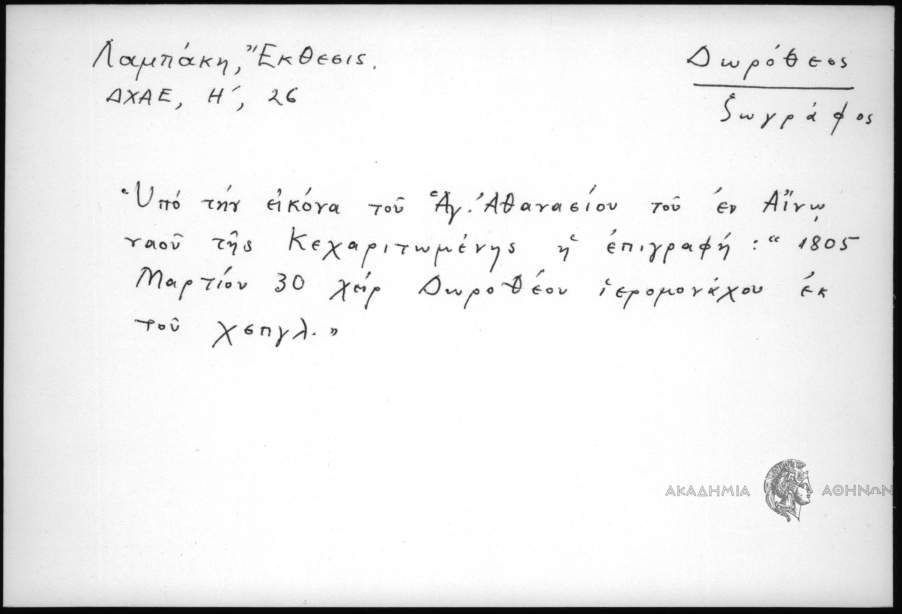 Λαμπάκη, Ἔκθεσις.
ΔΧΑΕ, Η΄, 26
Δωρόθεος
ζωγράφος
"Ὑπό τήν εἰκόνα τοῦ Ἁγ. Ἀθανασίου τοῦ ἐν Αἴνῳ
ναοῦ τῆς Κεχαριτωμένης ἡ ἐπιγραφή: "1805
Μαρτίου 30 χείρ Δωροθέου ἱερομονάχου ἐκ
τοῦ χσπγλ."
ΑΚΑΔΗΜΙΑ ΑΘΗΝΩΝ